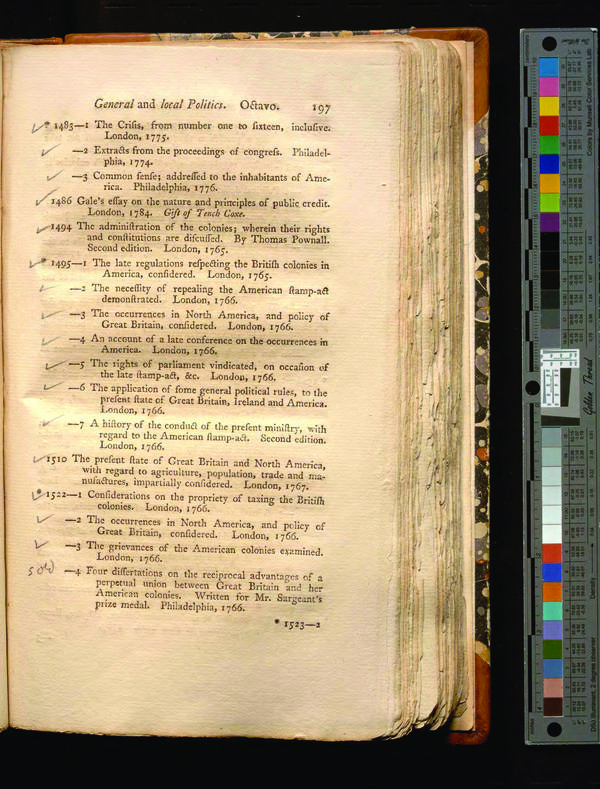 General and local Politics. Octavo. 197
* 1483—1 The Criſis, from number one to ſixteen, incluſive.
London, 1775.
—2 Extracts from the proceedings of congreſs. Philadel-
phia, 1774.
—3 Common ſenſe; addreſſed to the inhabitants of Ame-
rica. Philadelphia, 1776.
1486 Gale's eſſay on the nature and principles of public credit.
London, 1784. Gift of Tench Coxe.
1494 The adminiſtration of the colonies; wherein their rights
and conſtitutions are diſcuſſed. By Thomas Pownall.
Second edition. London, 1765.
* 1495—1 The late regulations reſpecting the Britiſh colonies in
America, conſidered. London, 1765.
—2 The neceſſity of repealing the American ſtamp-act
demonſtrated. London, 1766.
—3 The occurrences in North America, and policy of
Great Britain, conſidered. London, 1766.
—4 An account of a late conference on the occurrences in
America. London, 1766.
—5 The rights of parliament vindicated, on occaſion of
the late ſtamp-act, &c. London, 1766.
—6 The application of ſome general political rules, to the
preſent ſtate of Great Britain, Ireland and America.
London, 1766.
—7 A hiſtory of the conduct of the preſent miniſtry, with
regard to the American ſtamp-act. Second edition.
London, 1766.
1510 The preſent ſtate of Great Britain and North America,
with regard to agriculture, population, trade and ma-
nufactures, impartially conſidered. London, 1767.
* 1522—1 Conſiderations on the propriety of taxing the Britiſh
colonies. London, 1766.
—2 The occurrences in North America, and policy of
Great Britain, conſidered. London, 1766.
—3 The grievances of the American colonies examined.
London, 1766.
—4 Four diſſertations on the reciprocal advantages of a
perpetual union between Great Britain and her
American colonies. Written for Mr. Sargeant's
prize medal. Philadelphia, 1766.
* 1523—2
Golden Thread